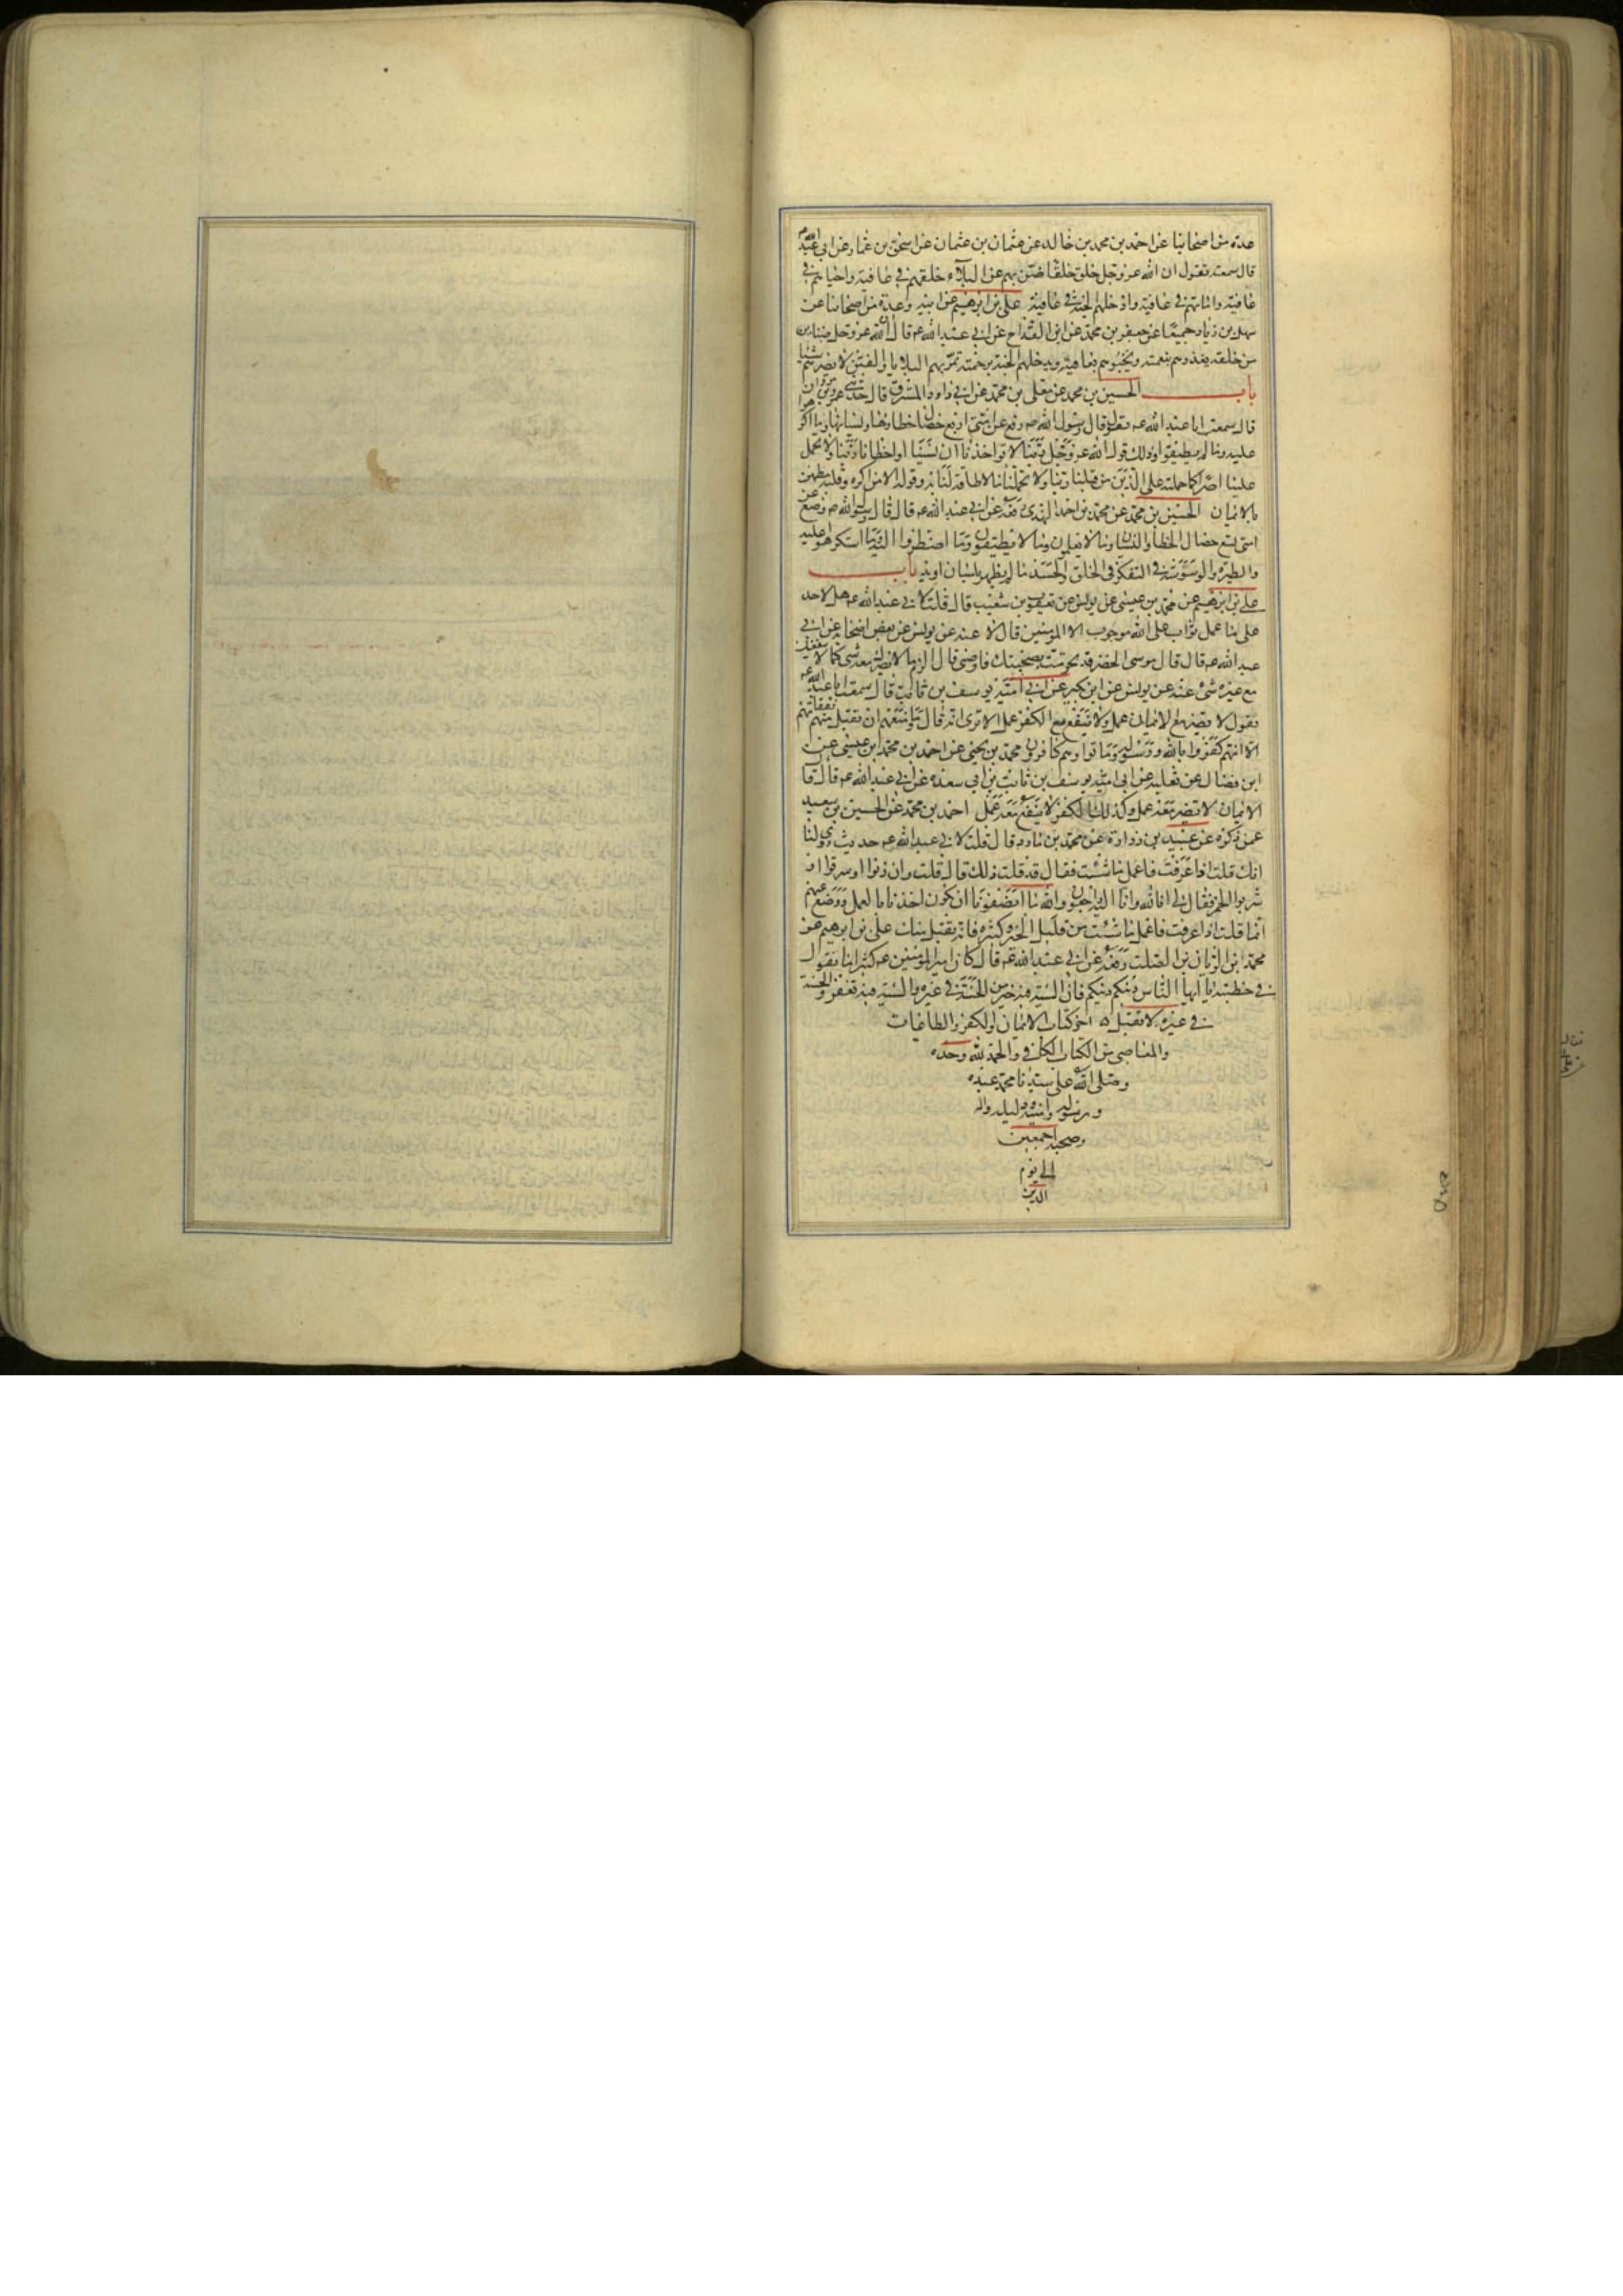 عدة من اصحابنا عن احمد بن محمد بن خالد عن عثمان بن عثمان عن اسحق بن عمار عن ابي عبد الله ع
قال سمعته يقول ان الله عز وجل خلق خلقا ضن بهم عن البلاء خلقهم في عافية واحياهم في
عافية واماتهم في عافية وادخلهم الجنة في عافية علي بن ابرهيم عن ابيه وعدة من اصحابنا عن
سهل بن زياد جميعا عن جعفر بن محمد عن ابن القداح عن ابي عبد الله عه قال ان لله عز وجل ضنائن
من خلقه يغذوهم بنعمته ويحبوهم بعافيته ويدخلهم الجنة برحمته تمر بهم البلايا والفتن لا تضرهم شيئا
باب الحسين بن محمد عن معلى بن محمد عن ابي داود المسترق قال حدثني عمرو بن مروان
قال سمعت ابا عبد الله عه يقول قال رسول الله صه رفع عن امتي اربع خصال خطاؤها ونسيانها وما اكرهوا
عليه وما لم يطيقوا وذلك قول الله عز وجل ربنا لا تواخذنا ان نسينا او اخطانا ربنا ولا تحمل
علينا اصرا كما حملته على الذين من قبلنا ربنا ولا تحملنا ما لا طاقة لنا به وقوله الا من اكره وقلبه مطمئن
بالايمان الحسين بن محمد عن محمد بن احمد النهدي رفعه عن ابي عبد الله عه قال قال رسول الله صه وضع عن
امتي تسع خصال الخطأ والنسيان وما لا يعلمون وما لا يطيقون وما اضطروا اليه وما استكرهوا عليه
والطيرة والوسوسة في التفكر في الخلق والحسد ما لم يظهر بلسان او يد باب
علي بن ابرهيم عن محمد بن عيسى عن يونس عن يعقوب بن شعيب قال قلت لابي عبد الله عه هل لاحد
على ما عمل ثواب على الله موجوب الا المومنين قال لا عنه عن يونس عن بعض اصحابه عن ابي
عبد الله عه قال قال موسى للخضر قد تحرمت بصحبتك فاوصني قال الزم ما لا يضرك معه شئ كما لا ينفعك
مع غيره شئ عنه عن يونس عن ابن بكير عن ابي امية يوسف بن ثابت قال سمعت ابا عبد الله عه
يقول لا يضر مع الايمان عمل ولا ينفع مع الكفر عمل الا ترى انه قال وما منعهم ان تقبل منهم نفقاتهم
الا انهم كفروا بالله وبرسوله وماتوا وهم كافرون محمد بن يحيى عن احمد بن محمد بن عيسى عن
ابن فضال عن ثعلبة عن ابي امية يوسف بن ثابت بن ابي سعدة عن ابي عبد الله عه قال قال
الايمان لا يضر معه عمل وكذلك الكفر لا ينفع معه عمل احمد بن محمد عن الحسين بن سعيد
عمن ذكره عن عبيد بن زرارة عن محمد بن مارد قال قلت لابي عبد الله عه حديث روي لنا
انك قلت اذا عرفت فاعمل ما شئت فقال قد قلت ذلك قال قلت وان زنوا او سرقوا او
شربوا الخمر فقال لي انا لله وانا اليه راجعون والله ما انصفونا ان نكون اخذنا بالعمل ووضع عنهم
انما قلت اذا عرفت فاعمل ما شئت من قليل الخير وكثيره فانه يقبل منك علي بن ابرهيم عن
محمد بن الريان بن الصلت رفعه عن ابي عبد الله عه قال كان امير المؤمنين عه كثيرا ما يقول
في خطبته يا ايها الناس دينكم دينكم فان السيئة فيه خير من الحسنة في غيره والسيئة فيه تغفر والحسنة
في غيره لا تقبل ه اخر كتاب الايمان والكفر والطاعات
والمعاصي من الكتاب الكافي والحمد لله وحده
وصلى الله على سيدنا محمد عبده
ورسوله وامينه ودليله واله
وصحبه اجمعين
الى يوم
الدين